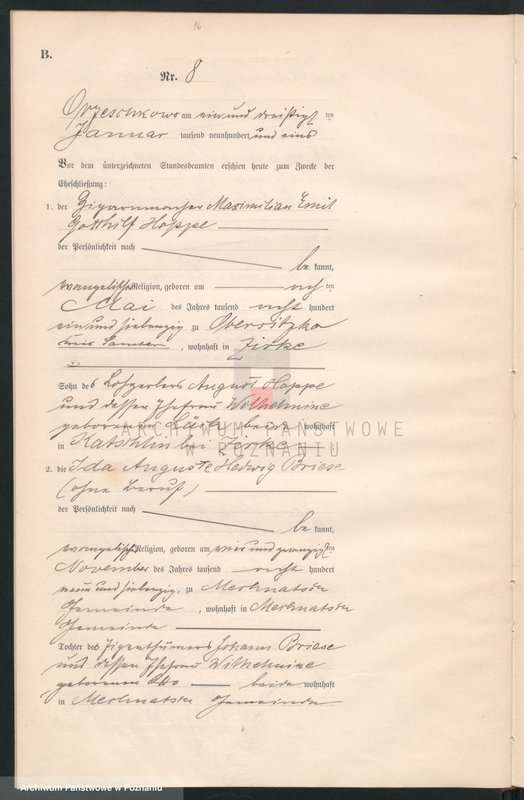 16
B.
Nr. 8
Orzeschkowo am ein und dreißigsten
Januar tausend neunhundert und eins
Vor dem unterzeichneten Standesbeamten erschien heute zum Zwecke der
Eheschließung:
1. der Zigarrmacher Maximilian Emil
Gotthilf Hoppe
der Persönlichkeit nach
be kannt,
evangelischer Religion, geboren am achten
Mai des Jahres tausend acht hundert
ein und siebenzig zu Obersitzko
Kreis Samter, wohnhaft in Zirke
Sohn des Lohgerbers August Hoppe
und dessen Ehefrau Wilhelmine
geborenen beide wohnhaft
in Katschlin bei Zirke
2. die Ida Auguste Hedwig Briese
(ohne Beruf)
der Persönlichkeit nach
be kannt,
evangelischer Religion, geboren am zwanzigsten
November des Jahres tausend acht hundert
neun und siebenzig, zu
Gemeinde, wohnhaft in
Gemeinde
Tochter des Eigenthümers Johann Briese
und dessen Ehefrau Wilhelmine
geborenen Otto beide wohnhaft
in Gemeinde
ARCHIWUM PAŃSTWOWE
W POZNANIU
Archiwum Państwowe w Poznaniu